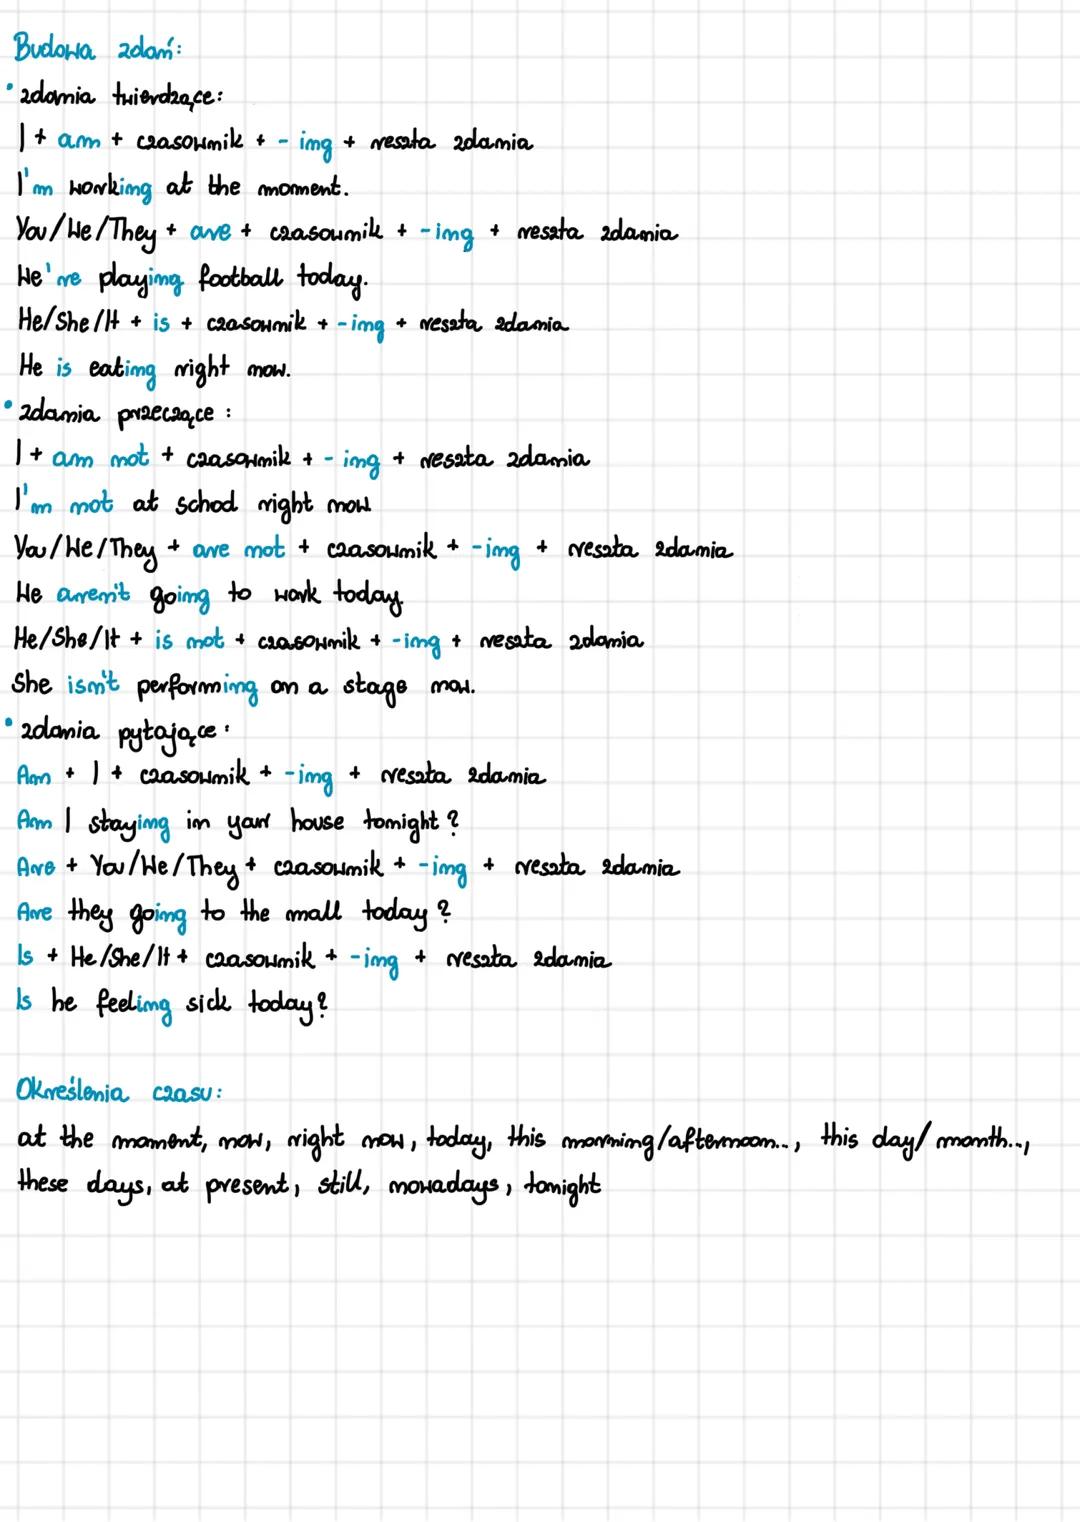 Budowa zdań:
• zdania twierdzące:
I + am + czasownik + -ing + reszta zdania
I'm working at the moment.
You/We/They + are + czasownik + -ing + reszta zdania
We're playing football today.
He/She/It + is + czasownik + -ing + reszta zdania
He is eating right now.
• zdania przeczące:
I + am not + czasownik + -ing + reszta zdania
I'm not at school right now
You/We/They + are not + czasownik + -ing + reszta zdania
We aren't going to work today.
He/She/It + is not + czasownik + -ing + reszta zdania
She isn't performing on a stage now.
• zdania pytające:
Am + I + czasownik + -ing + reszta zdania
Am I staying in your house tonight?
Are + You/We/They + czasownik + -ing + reszta zdania
Are they going to the mall today?
Is + He/She/It + czasownik + -ing + reszta zdania
Is he feeling sick today?
Określenia czasu:
at the moment, now, right now, today, this morning/afternoon..., this day/month...,
these days, at present, still, nowadays, tonight